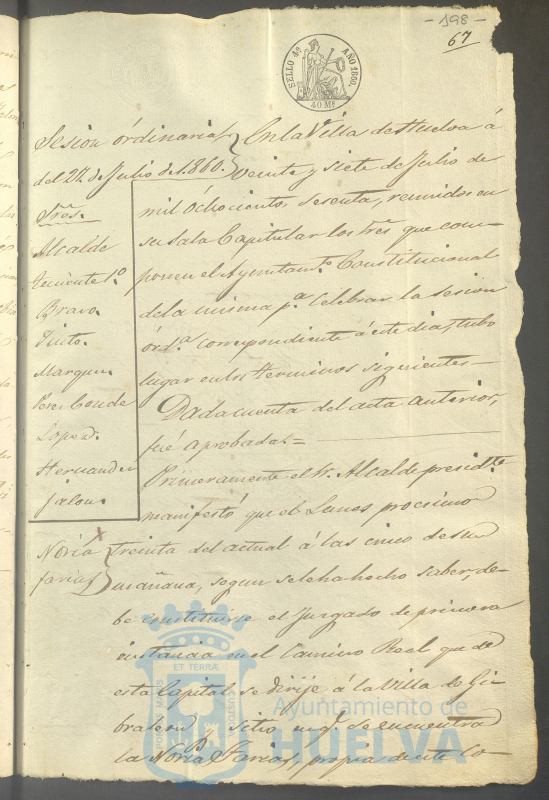 - 198 -
67
SELLO 4º AÑO 1860.
40 Ms
Sesion órdinaria
del 27. de Julio de 1.860.
Sres.
Alcalde
Teniente 1.º
Bravo.
Pinto.
Marquez.
Perez Conde
Lopez.
Hernandez
Jalon.
En la Villa de Huelva á
veinte y siete de Julio de
mil óchocientos sesenta, reunidos en
su Sala Capitular los Sres que com-
ponen el Ayuntam.to Constitucional
de la misma p.a celebrar la sesion
órd.a correspondiente á este dia, tubo
lugar en los terminos siguientes
Dada cuenta del acta anterior,
fué aprobada=
Primeramente el Sr. Alcalde presid.te
manifestó que el Lunes procsimo
Noria
Farias
treinta del actual á las cinco de su
mañana, segun se le ha hecho saber, de-
be constituirse el Juzgado de primera
instancia en el Camino Real que de
esta Capital se dirije á la Villa de Gi-
braleon y sitio en q.e se encuentra
la Noria Farias, propia de este Co-
ET TERRÆ
Ayuntamiento de
HUELVA